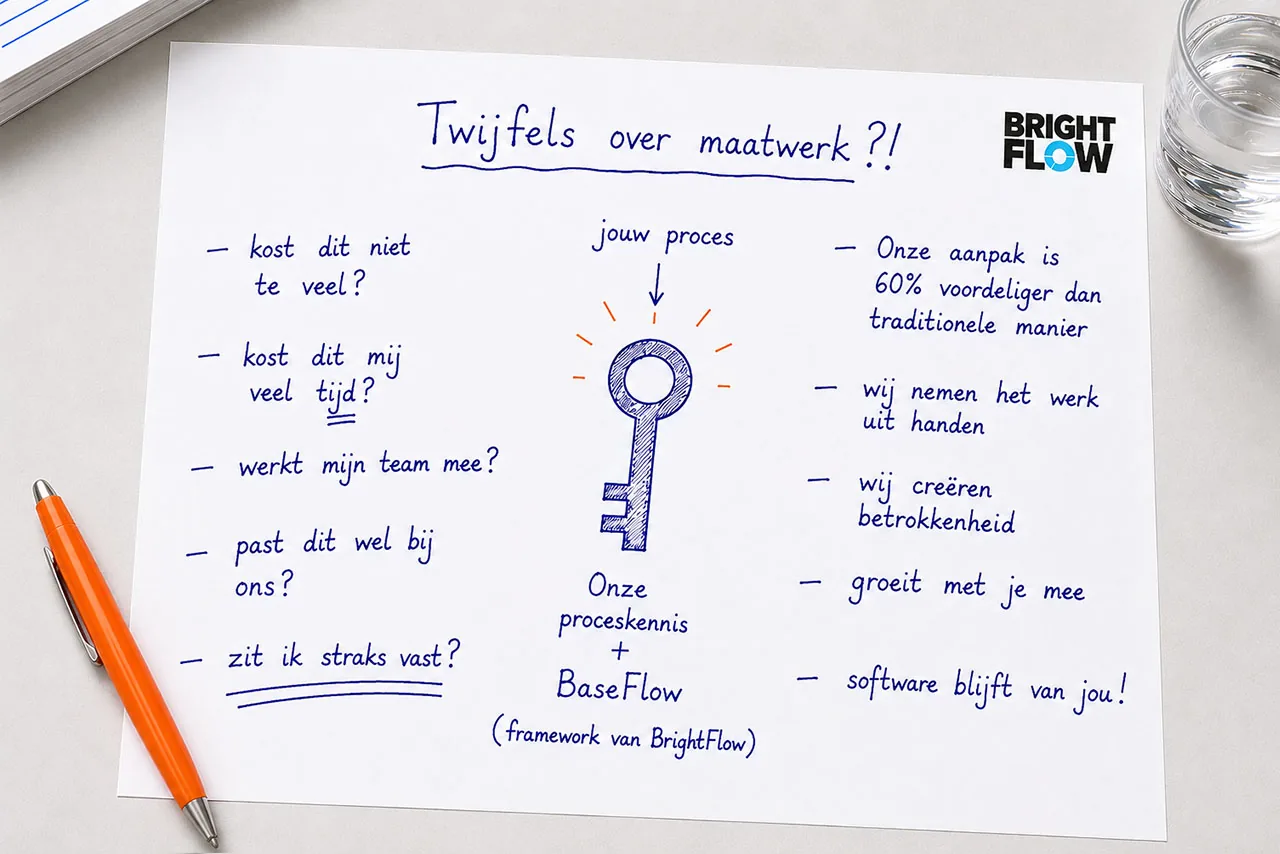 Twijfels over maatwerk ?!
BRIGHT
FLOW
– kost dit niet
te veel?
– kost dit mij
veel tijd?
– werkt mijn team mee?
– past dit wel bij
ons?
– zit ik straks vast?
jouw proces
Onze
proceskennis
+
BaseFlow
(framework van BrightFlow)
– Onze aanpak is
60% voordeliger dan
traditionele manier
– wij nemen het werk
uit handen
– wij creëren
betrokkenheid
– groeit met je mee
– software blijft van jou!